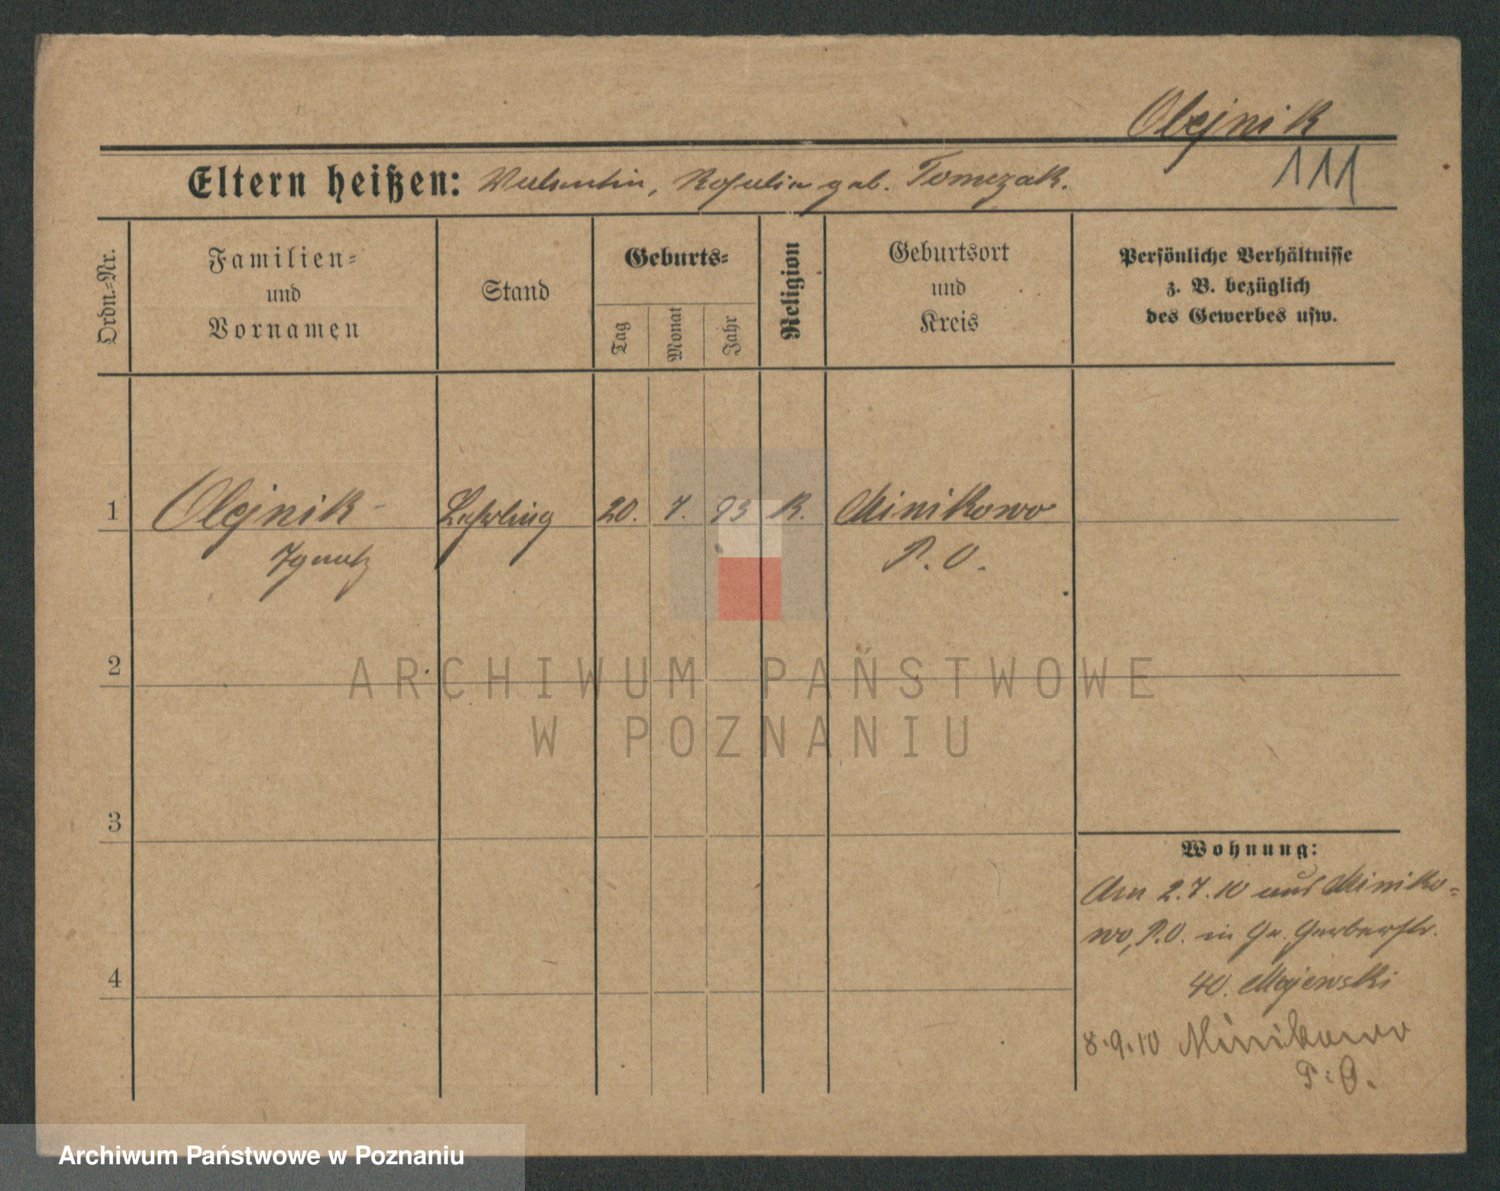 Olejnik
111
Eltern heißen: Valentin, Rosalia geb. Tomczak.
Ordn.-Nr.
Familien-
und
Vornamen
Stand
Geburts-
Tag
Monat
Jahr
Religion
Geburtsort
und
Kreis
Persönliche Verhältnisse
z. B. bezüglich
des Gewerbes usw.
1 Olejnik Lehrling 20. 7. 93 K. Minikowo
Ignatz P. O.
2
3
4
Wohnung:
Am 2.7.10 aus Miniko-
wo, P.O. in Gr. Gerberstr.
40. Majewski
8.9.10 Minikowo
P.O.
ARCHIWUM PAŃSTWOWE
W POZNANIU
Archiwum Państwowe w Poznaniu